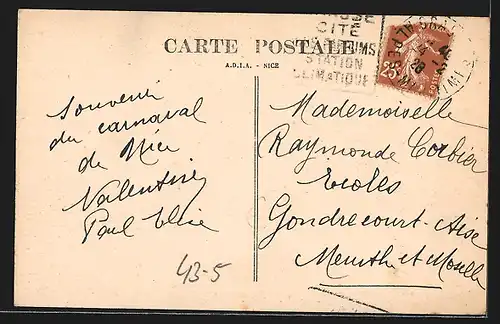 CITÉ
PARFUMS
STATION
CLIMATIQUE
25
CARTE POSTALE
A.D.I.A. - NICE
Souvenir
du carnaval
de Nice
Valentine
Paul
43-5
Mademoiselle
Raymonde Corbier
Ecoles
Gondrecourt-Aise
Meurthe et Moselle